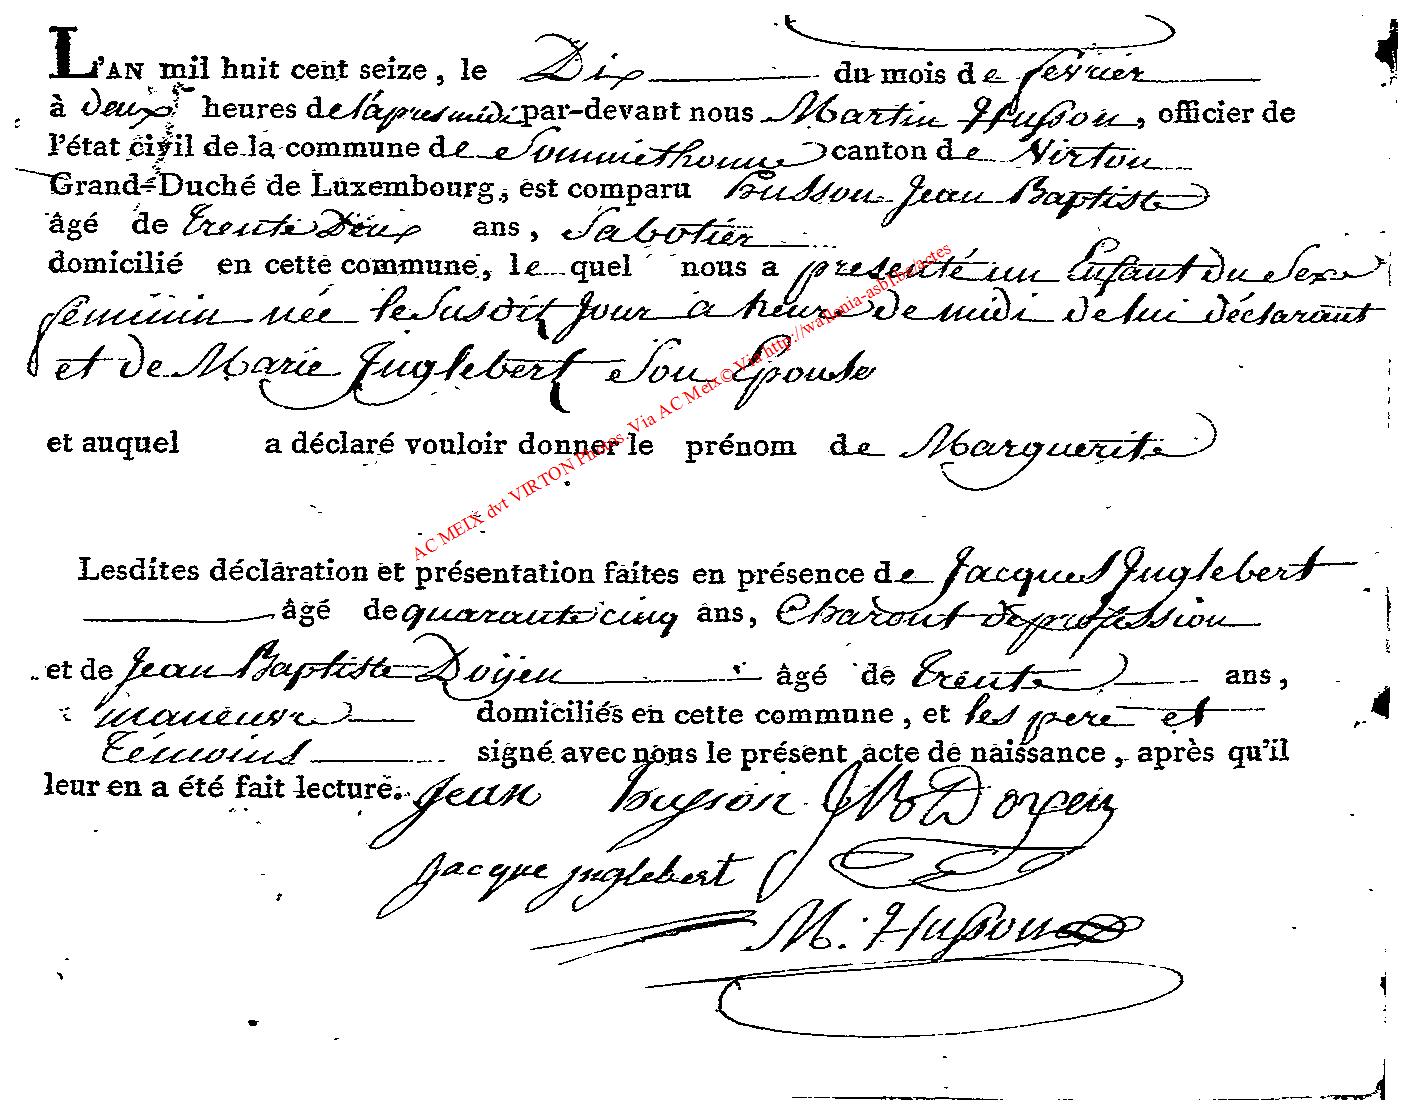 L'AN mil huit cent seize, le Dix du mois de fevrier
à deux heures de l'apres midi par-devant nous Martin Husson, officier de
l'état civil de la commune de Sommethonne canton de Virton
Grand-Duché de Luxembourg, est comparu husson Jean Baptiste
âgé de trente Deux ans, Sabotier
domicilié en cette commune, le quel nous a presenté un Enfant du Sexe
feminin née le Susdit Jour a heure de midi de lui déclarant
et de Marie Juglebert Son Epouse
et auquel a déclaré vouloir donner le prénom de Marguerite
Lesdites déclaration et présentation faites en présence de Jacques Juglebert
âgé de quarante cinq ans, Charont de profession
et de Jean Baptiste Doyen âgé de trente ans,
maneuvre domiciliés en cette commune, et les pere et
témoins signé avec nous le présent acte de naissance, après qu'il
leur en a été fait lecture. Jean husson JB Doyen
jacque juglebert
M. Husson
AC MEIX dvt VIRTON Photos. Via AC Meix © Via http://wallonia-asbl.be/actes